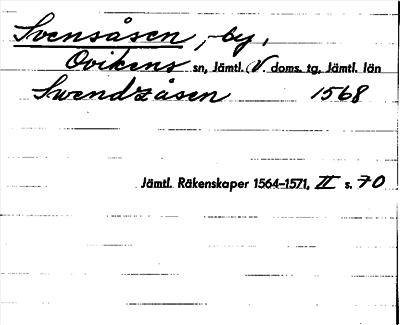 Svensåsen, by,
Ovikens sn, Jämtl. V. doms. tg, Jämtl. län
Swendzåsen 1568
Jämtl. Räkenskaper 1564–1571, II s. 70